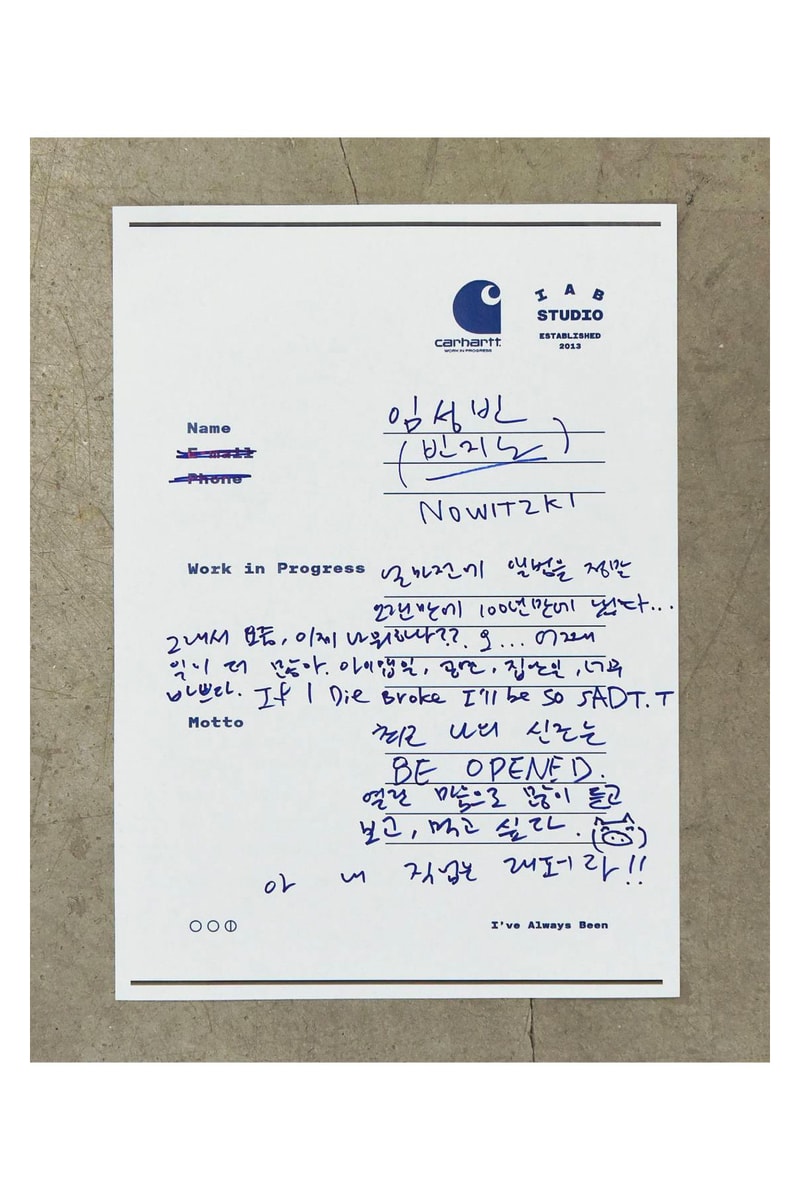 carhartt.
WORK IN PROGRESS
IAB
STUDIO
ESTABLISHED
2013
Name
임성빈
E-mail
(빈지노)
Phone
NOWITZKI
Work in Progress
얼마전에 앨범을 정말
오랜만에 100년만에 냈다...
그래서 보통, 이제 나 뭐하나?? 오...
일이 더 많아. 아이앱일, 공연, 집안일, 너무
바쁘다. If I Die Broke I'll be so SAD T.T
Motto
최고 나의 신조는
BE OPENED.
열린 마음으로 많이 듣고
보고, 먹고 싶다. ( )
아 내 직업은 래퍼라!!
I've Always Been